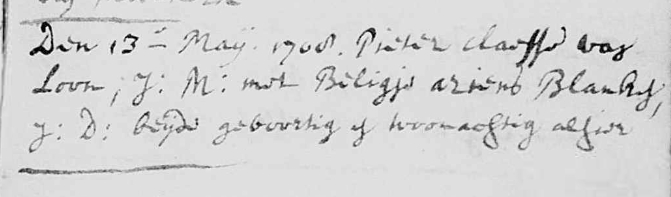 Den 13ᵉ Maij. 1708. Pieter claesse van
Loon, J: M: met Beligje ariens Blank,
J: D: beijde geboortig en woonachtig alhier